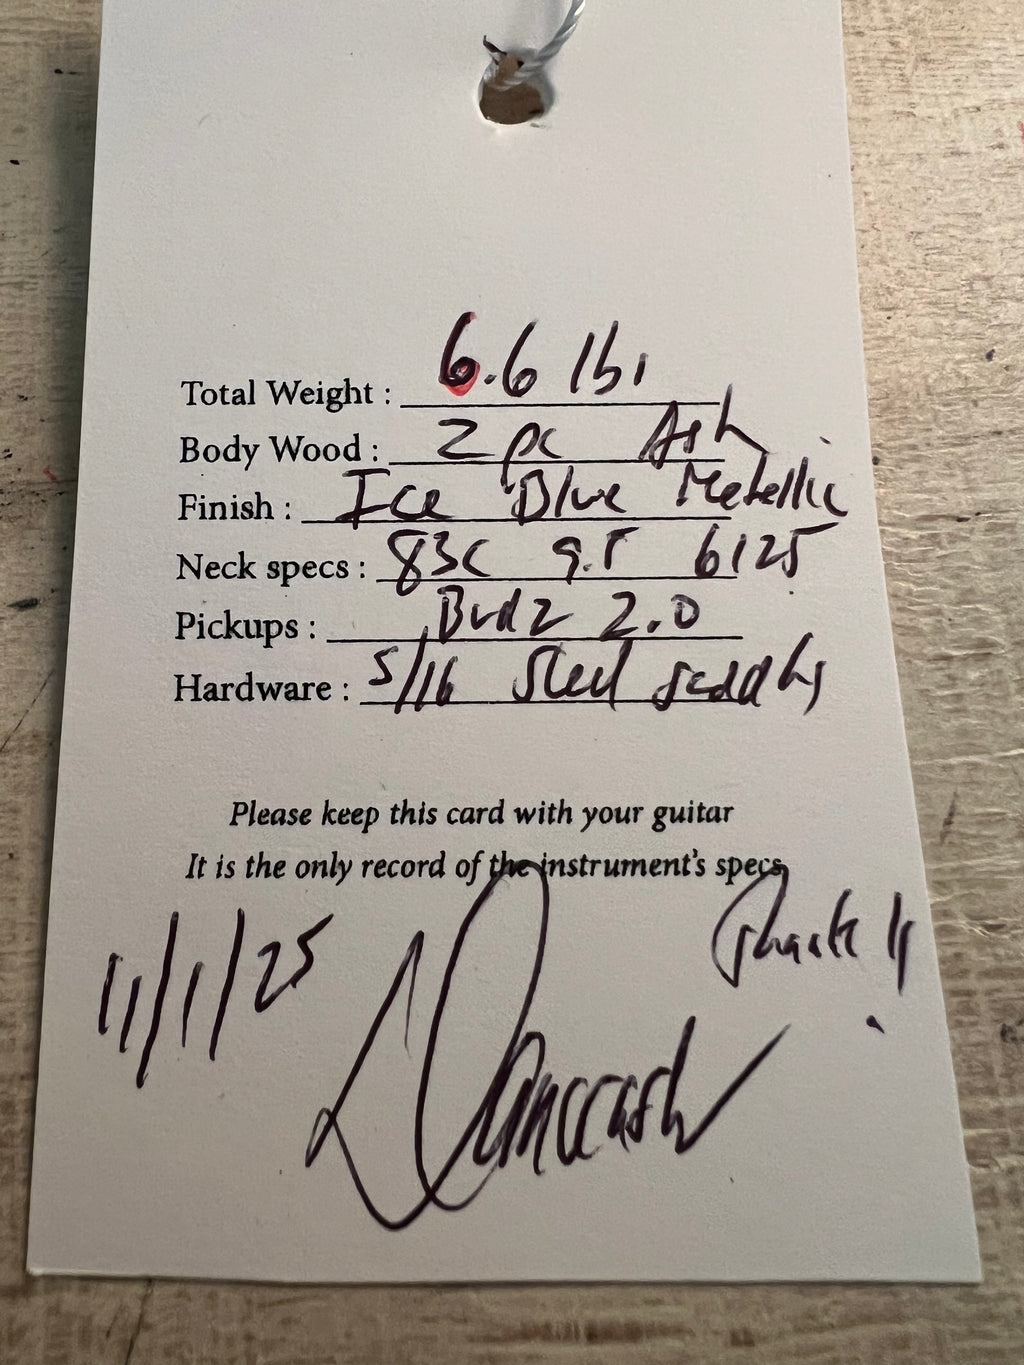 Total Weight : 6.6 lbs
Body Wood : 2 pc Ash
Finish : Ice Blue Metallic
Neck specs : 83C 9.5 6125
Pickups : Birdz 2.0
Hardware : 5/16 Steel saddles
Please keep this card with your guitar
It is the only record of the instrument's specs
11/1/25